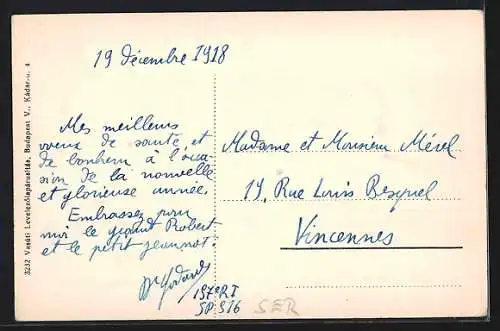 19 décembre 1918
Mes meilleurs
vœux de santé et
de bonheur à l'occa-
sion de la nouvelle
et glorieuse année.
Embrassez pour
moi le grand Robert
et le petit Jeannot.
Godard
157e RI
SP 516
Madame et Monsieur Mérel
19, Rue Louis Besquel
Vincennes
SER
3232 Vasúti Levelezőlapárusitás, Budapest V., Kádár-u. 4